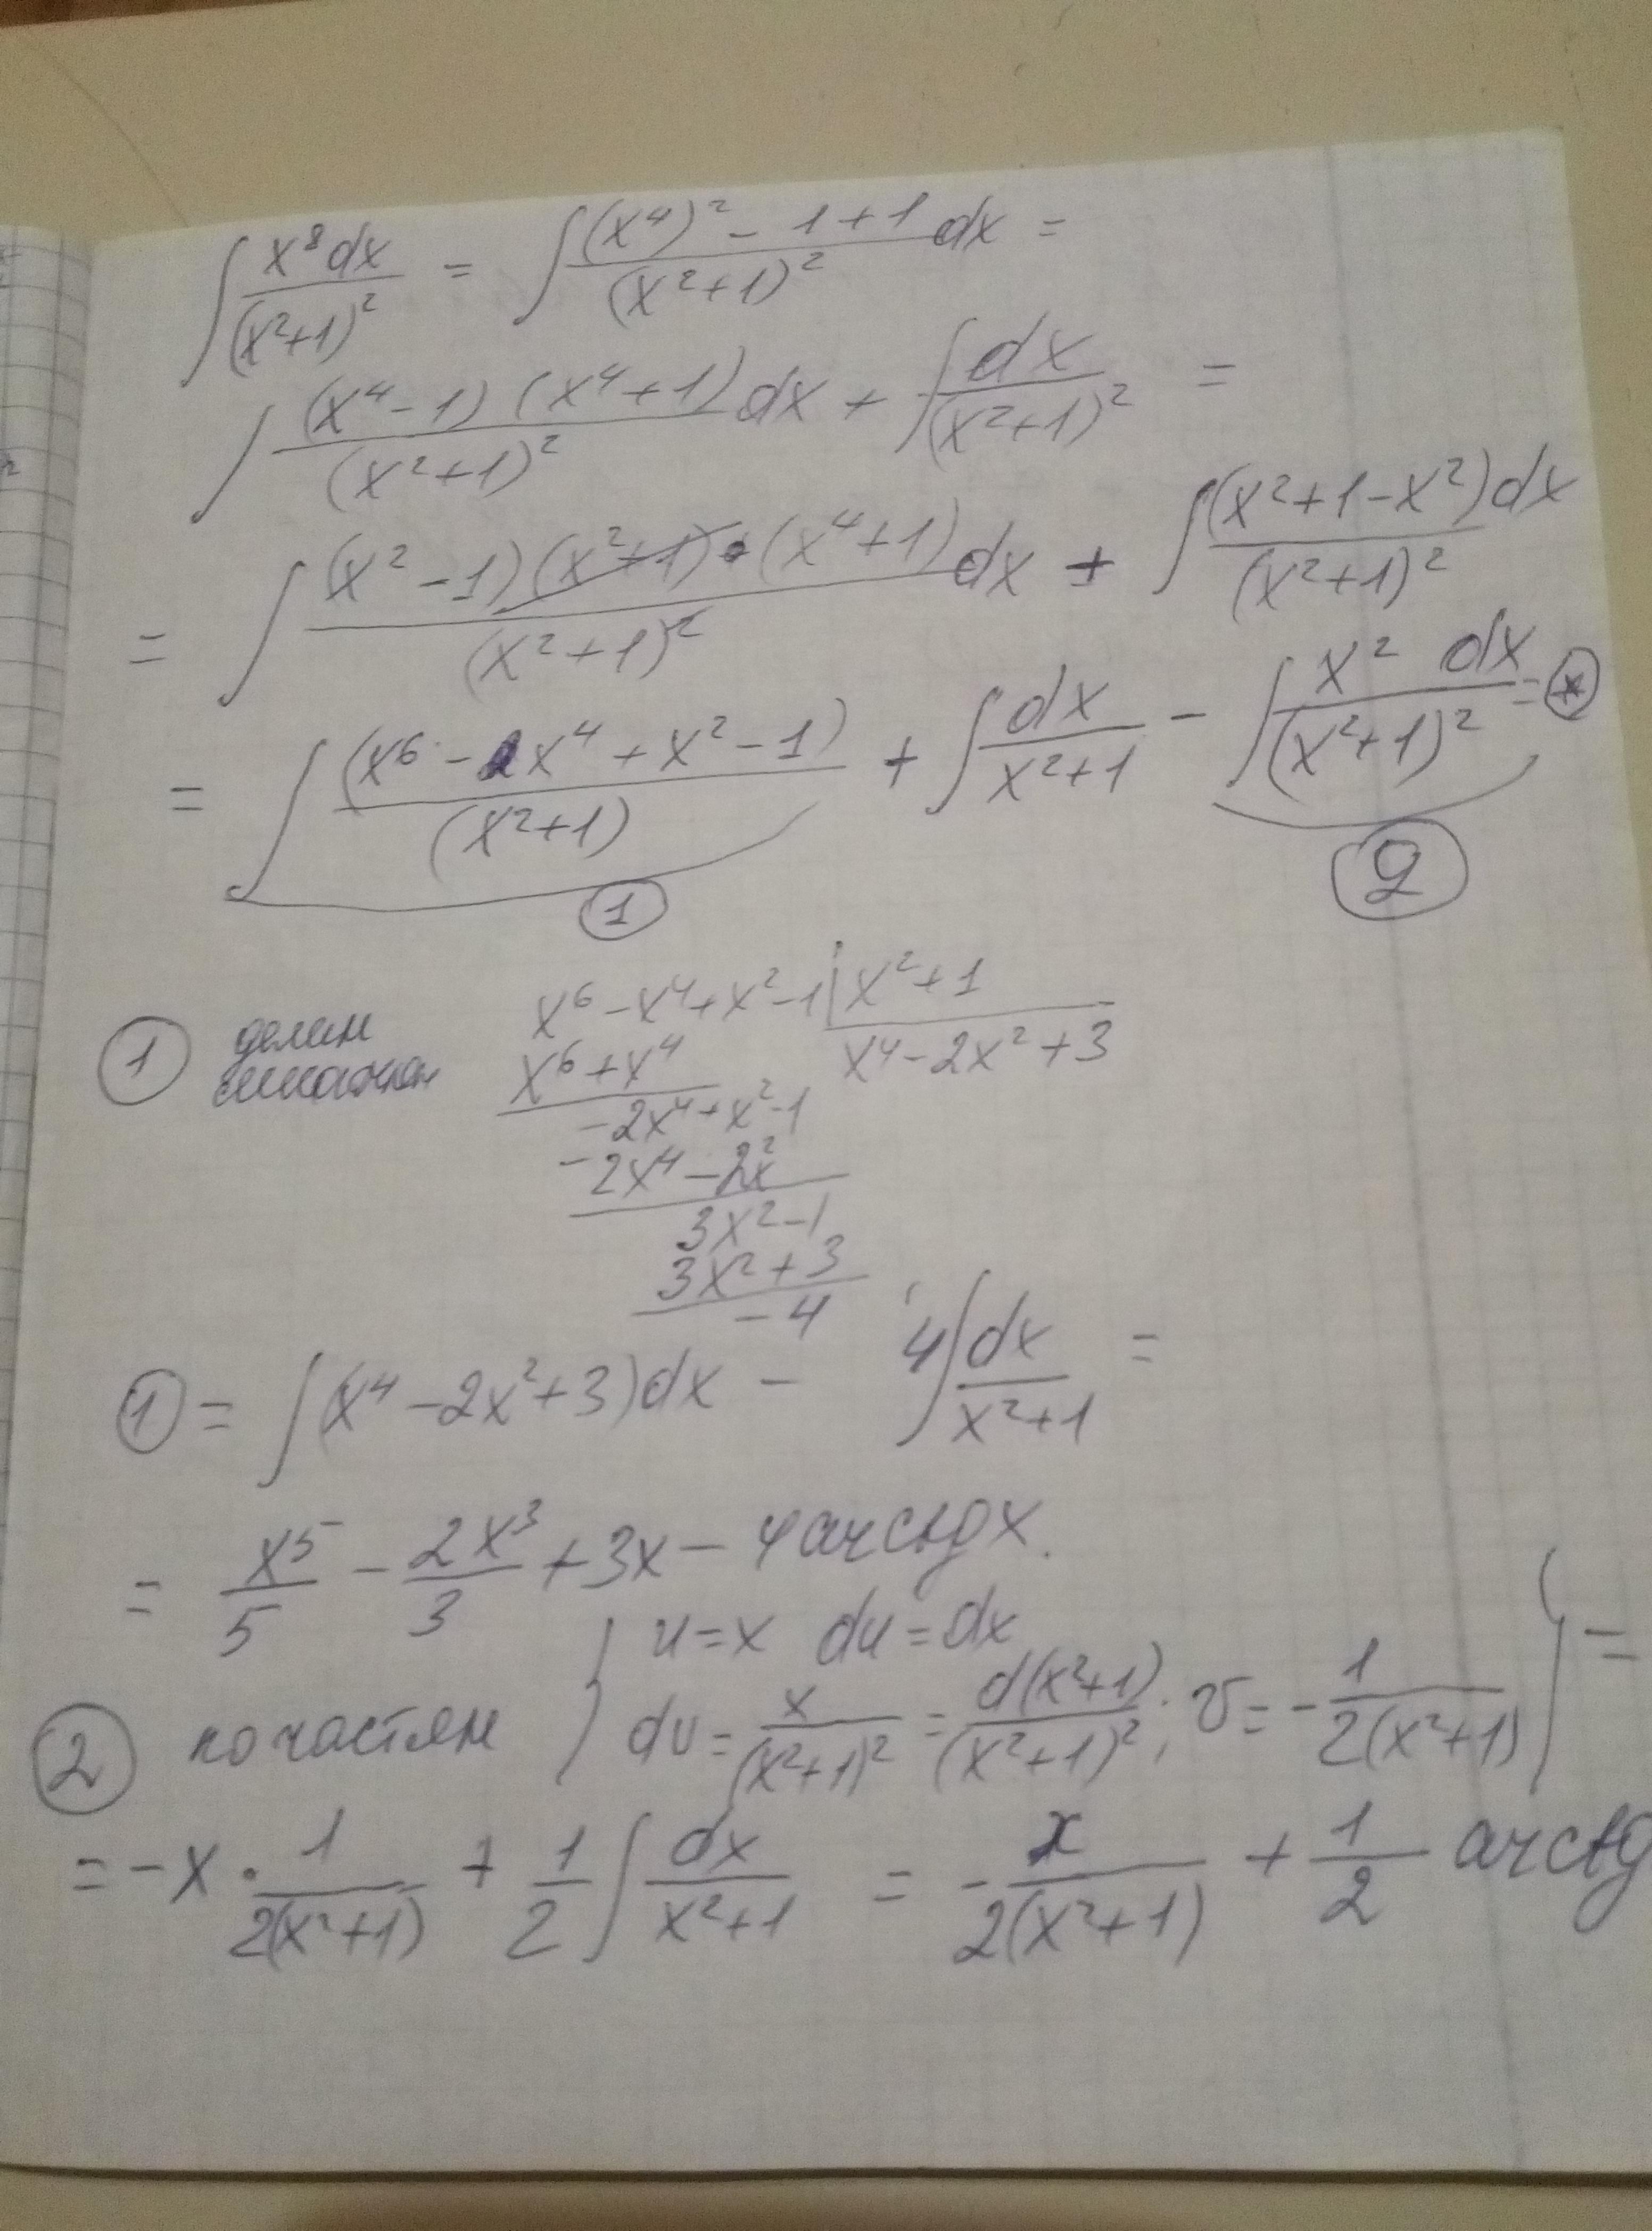 ∫ x⁸dx / (x²+1)² = ∫ ((x⁴)² - 1 + 1) / (x²+1)² dx =
∫ (x⁴-1)(x⁴+1) / (x²+1)² dx + ∫ dx / (x²+1)² =
= ∫ (x²-1)(x²+1)·(x⁴+1) / (x²+1)² dx + ∫ (x²+1-x²)dx / (x²+1)²
= ∫ (x⁶ - x⁴ + x² - 1) / (x²+1) + ∫ dx / (x²+1) - ∫ x² dx / (x²+1)² = (*)
① ②
① делим
x⁶-x⁴+x²-1 | x²+1
x⁶+x⁴ x⁴-2x²+3
-2x⁴+x²-1
-2x⁴-2x²
3x²-1
3x²+3
-4
① = ∫(x⁴-2x²+3)dx - 4∫ dx / (x²+1) =
= x⁵/5 - 2x³/3 + 3x - 4arctgx.
② по частям { u=x du=dx
dv = x / (x²+1)² = d(x²+1) / (x²+1)²; v = - 1 / 2(x²+1) } =
= -x · 1 / 2(x²+1) + 1/2 ∫ dx / (x²+1) = - x / 2(x²+1) + 1/2 arctg